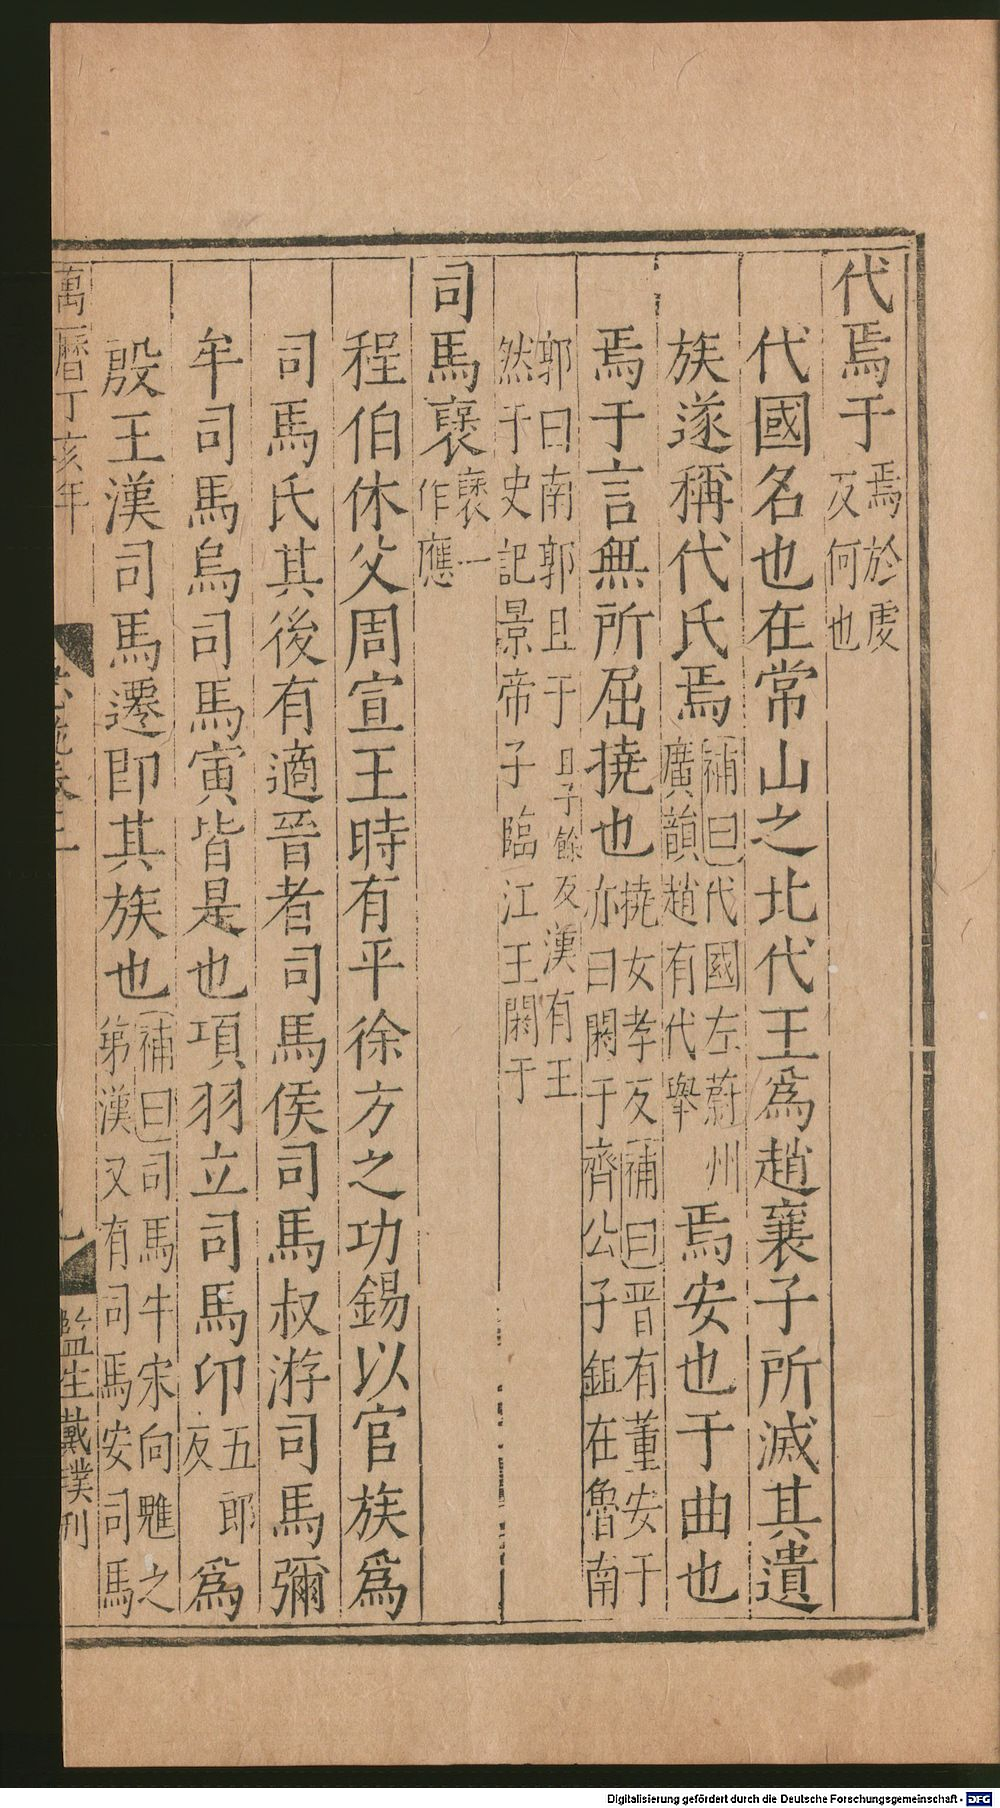 代焉于焉於䖍反何也
代國名也在常山之北代王爲趙襄子所滅其遺
族遂稱代氏焉補曰代國左蔚州廣韻趙有代舉焉安也于曲也
焉于言無所屈撓也撓女孝反補曰晋有董安于亦曰閼于齊公子鉏在魯南
郭曰南郭且于且子餘反漢有王然于史記景帝子臨江王閼于
司馬褎褎一作應
程伯休父周宣王時有平徐方之功錫以官族爲
司馬氏其後有適晉者司馬侯司馬叔游司馬彌
牟司馬烏司馬寅皆是也項羽立司馬卬五郎反爲
殷王漢司馬遷即其族也補曰司馬牛宋向魋之弟漢又有司馬安司馬
萬曆丁亥年
監生戴㯷刊
Digitalisierung gefördert durch die Deutsche Forschungsgemeinschaft - DFG